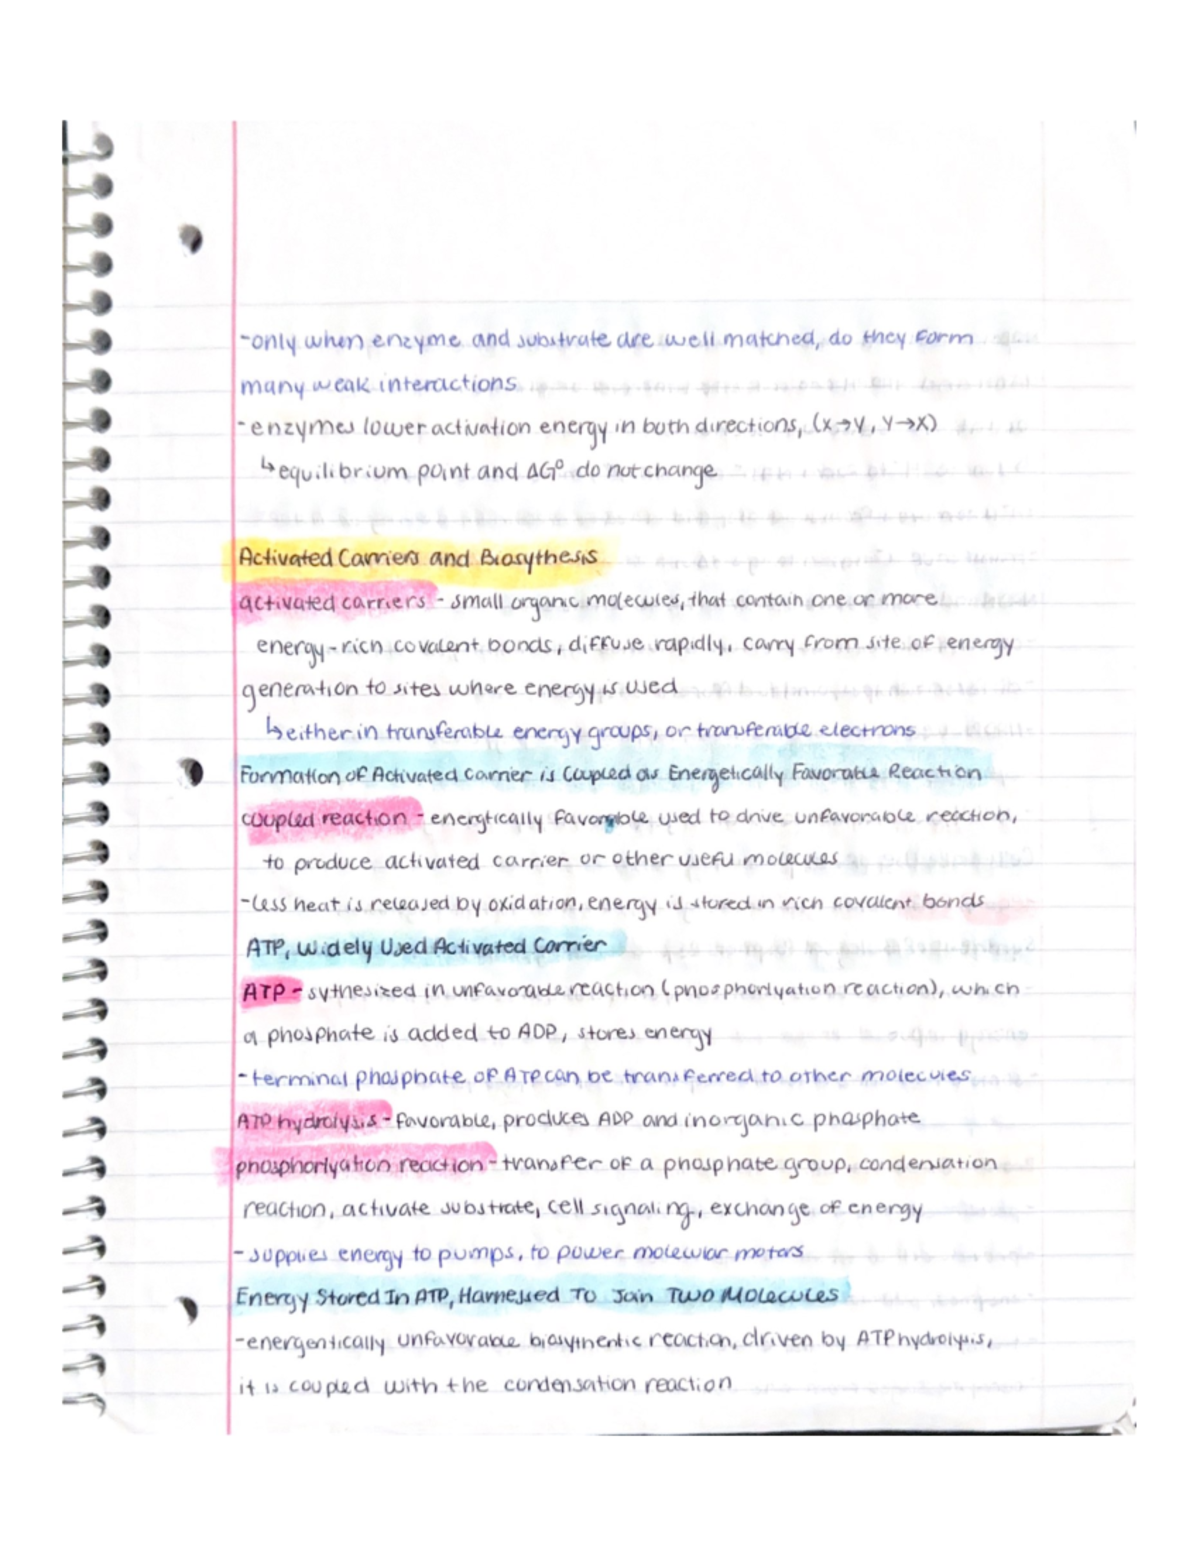 -only when enzyme and substrate are well matched, do they form
many weak interactions
-enzymes lower activation energy in both directions, (x→y, y→x)
↳equilibrium point and ΔG° do not change
Activated Carriers and Biosythesis
activated carriers - small organic molecules, that contain one or more
energy-rich covalent bonds, diffuse rapidly, carry from site of energy
generation to sites where energy is used
↳either in transferable energy groups, or transferable electrons
Formation of Activated Carrier is Coupled as Energetically Favorable Reaction
coupled reaction - energtically favorable used to drive unfavorable reaction,
to produce activated carrier or other useful molecules
-less heat is released by oxidation, energy is stored in rich covalent bonds
ATP, Widely Used Activated Carrier
ATP - sythesized in unfavorable reaction (phosphorlyation reaction), which
a phosphate is added to ADP, stores energy
-terminal phosphate of ATP can be transferred to other molecules
ATP hydrolysis - favorable, produces ADP and inorganic phosphate
phosphorlyation reaction - transfer of a phosphate group, condensation
reaction, activate substrate, cell signaling, exchange of energy
- supplies energy to pumps, to power molecular motors
Energy Stored In ATP, Harnessed To Join Two Molecules
-energentically unfavorable biosynthentic reaction, driven by ATP hydrolysis,
it is coupled with the condensation reaction